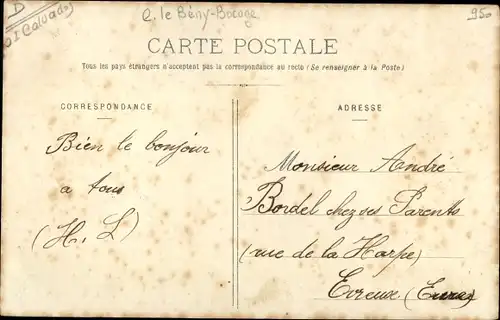 D
(Calvados)
C. le Bény-Bocage
950
CARTE POSTALE
Tous les pays étrangers n'acceptent pas la correspondance au recto (Se renseigner à la Poste)
CORRESPONDANCE
ADRESSE
Bien le bonjour
a tous
(H. L)
Monsieur André
Bordel chez ses Parents
(rue de la Harpe)
Evreux (Eure)